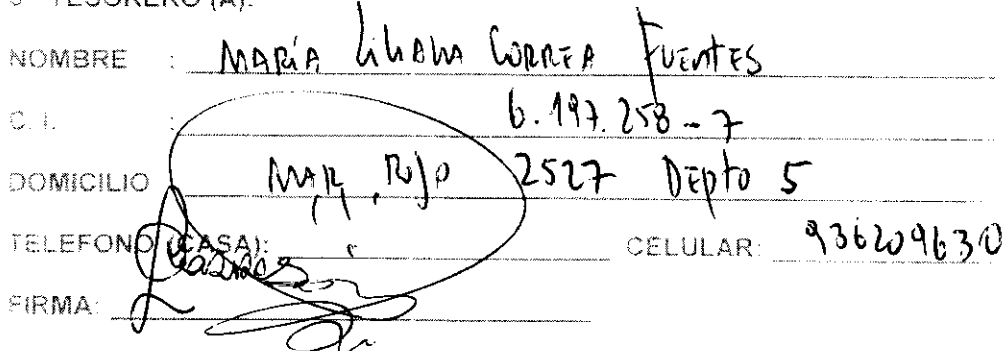 TESORERO (A):
NOMBRE : MARÍA LILIANA CORREA FUENTES
C. I. : 6.197.258-7
DOMICILIO MAR ROJO 2527 DEPTO 5
TELEFONO (CASA): CELULAR: 936209630
FIRMA: